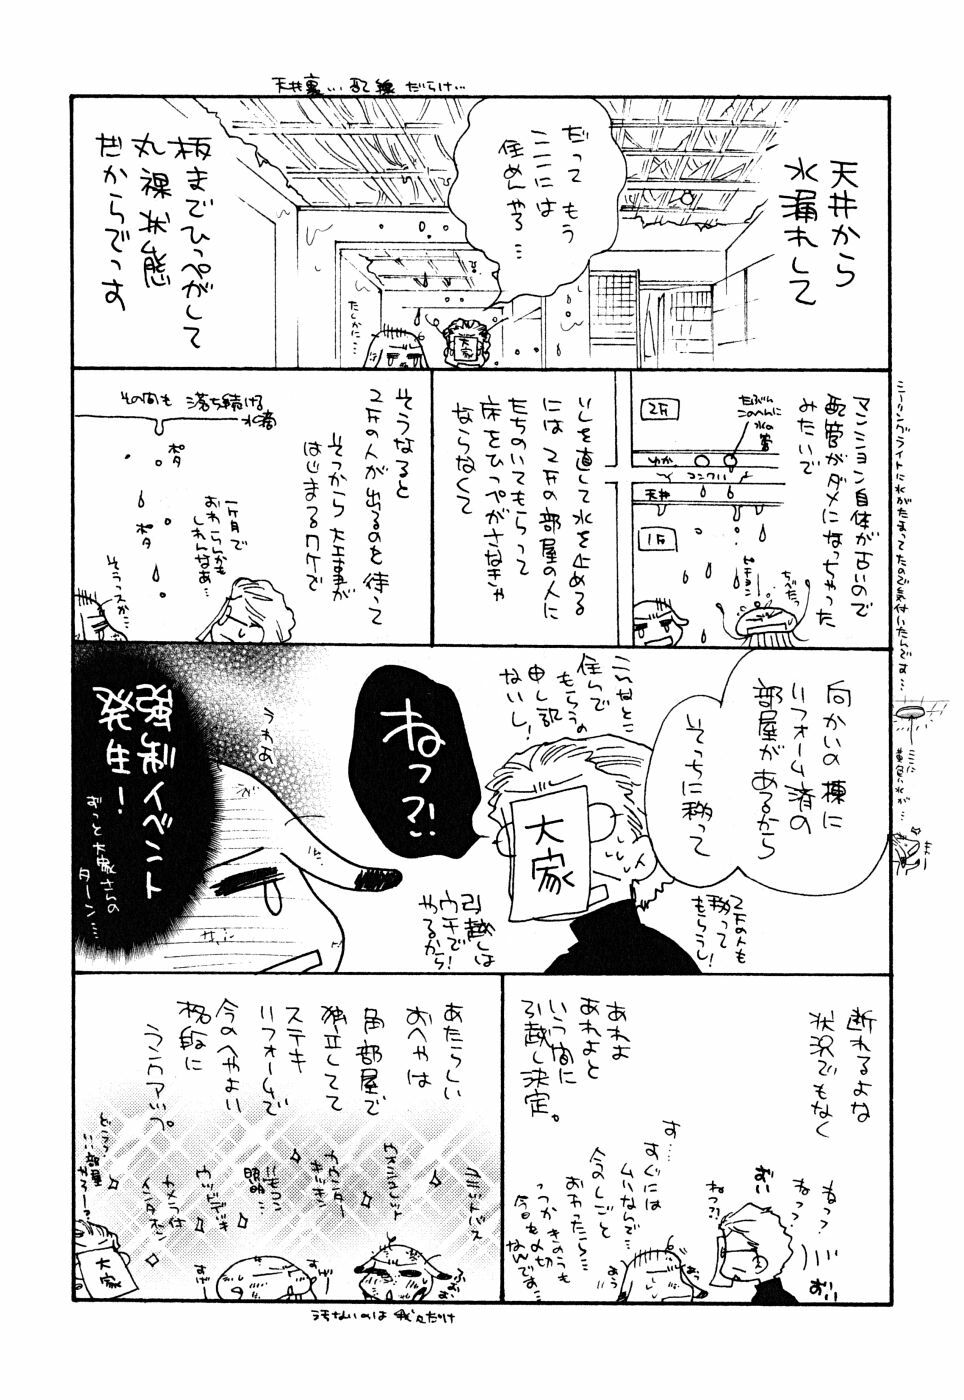 天井裏…配線だらけ…
天井から
水漏れして
だって もう
ここには
住めんやろ…
たしかに…
大家
板までひっぺがして
丸裸状態
だからでっす
マンション自体が古いので
配管がダメになっちゃった
みたいで
2F
たぶん
このへんに
水の管
ゆか
コンクリ
天井
1F
ピチョン
ちべたっ
シーリングライトに水がたまってたので気付いたんです…
いしを直して水を止める
には 2Fの部屋の人に
たちのいてもらって
床をひっぺがさなきゃ
ならなくて
そうなると
2Fの人が出るのを待って
そっから大工事が
はじまるワケで
その間も 落ち続ける
水滴
ポタ
ポタ
一ヶ月で
おわらんかも
しれんなあ…
そうっスか…
向かいの棟に
リフォーム済の
部屋があるから
そっちに移って
2Fの人も
移って
もらうし!
こんなとこ
住んで
もらうの
申し訳
ないし!
大家
ねっ?!
引越しは
ウチで
やるから!
うわあ
強制イベント
発生!
ずっと大家さんの
ターン…
断れるよな
状況でもなく
ねっ?
ねっ?
おい
おい
ねっ?!
あれよ
あれよと
いう間に
引越し決定。
す……
すぐには
ムリなんで…
今のしごと
おわったら…
つっかきのうも
今日も〆切
なんでぁ…
あたらしい
おへやは
角部屋で
独立してて
ステキ
リフォームで
今のへやよい
格段に
ランクアップ。
カウンター
キッチン
リモコン
照明
ウッドデッキ
カメラ付
インタホン
どうっ
いい部屋
やろー?
大家
すげー
すげー
うろないのは 我々だけ